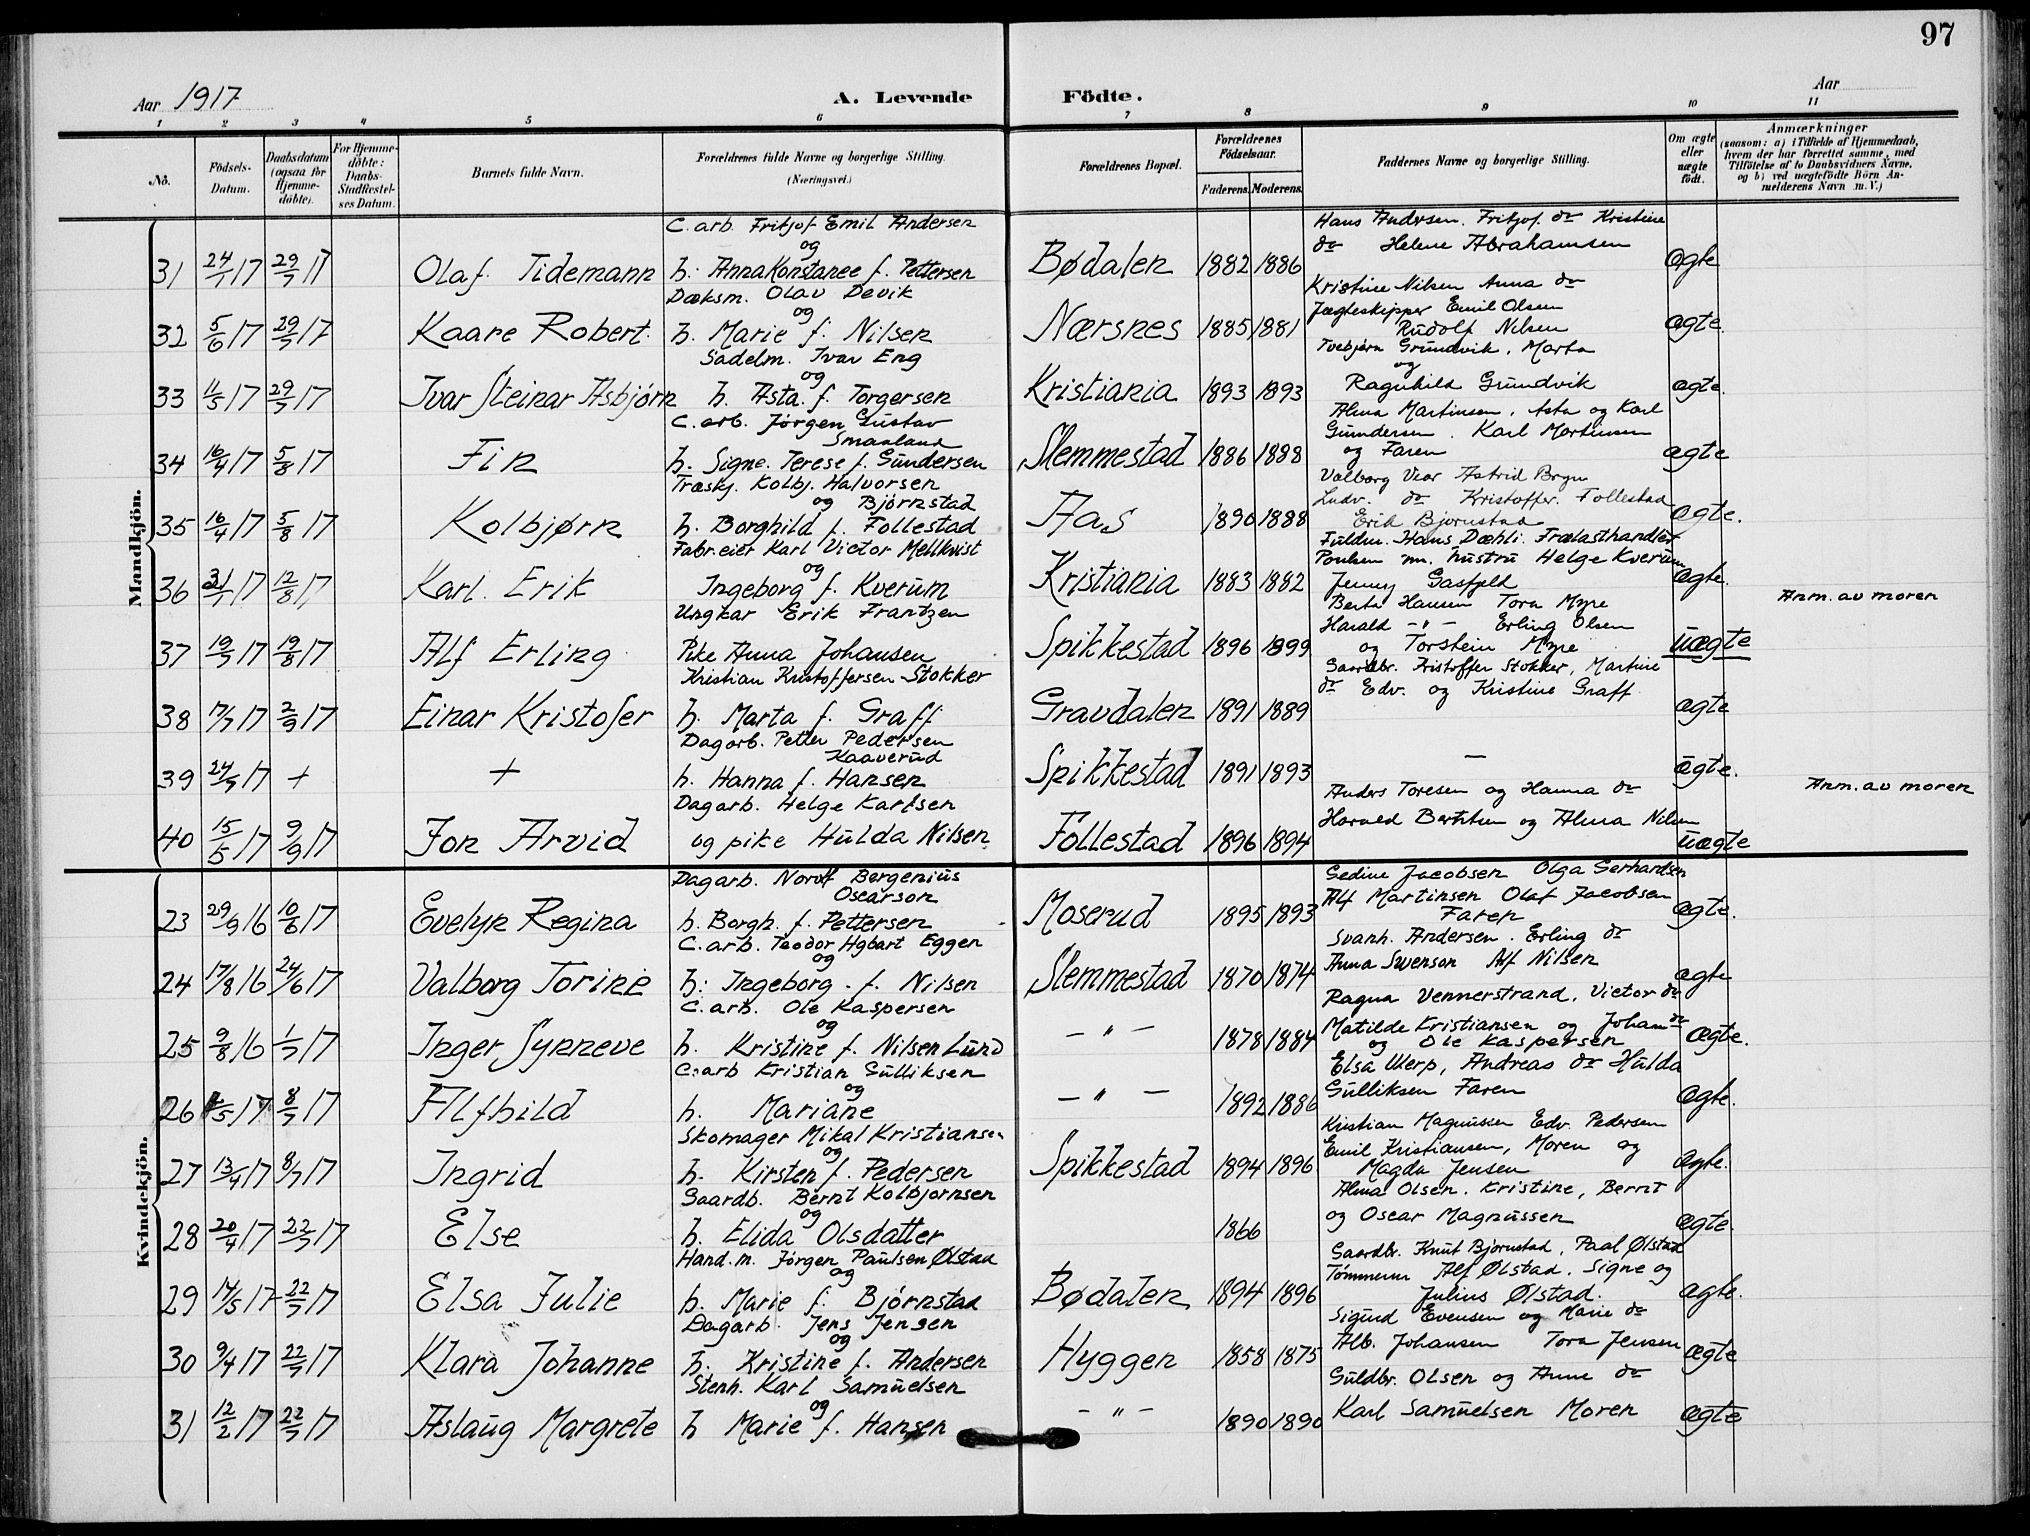 97
Aar 1917
A. Levende Födte.
Aar
1 2 3 4 5 6 7 8 9 10 11
No.
Födsels-Datum.
Daabsdatum (ogsaa for Hjemme-döbte).
For Hjemme-döbte: Daabs-Stadfæstel-ses Datum.
Barnets fulde Navn.
Forældrenes fulde Navne og borgerlige Stilling. (Næringsvei.)
Forældrenes Bopæl.
Forældrenes Födselsaar.
Faderens. Moderens.
Faddernes Navne og borgerlige Stilling.
Om ægte eller uægte födt.
Anmærkninger (saasom: a) i Tilfælde af Hjemmedaab, hvem der har forrettet samme, med Tilföielse af to Daabsvidners Navne. og b) ved uægtefödte Börn An-melderens Navn m. V.)
Mandkjön.
C. arb. Fritjof Emil Andersen
og
31 24/7 17 29/7 17 Olaf Tidemann h. Anna Konstance f. Pettersen Bødalen 1882 1886 ægte
Hans Andersen. Fritjof do Kristine
do Helene Abrahamsen
Dæksm. Olav Devik
og
32 5/6 17 29/7 17 Kaare Robert. h. Marie f. Nilsen Nærsnes 1885 1881 ægte.
Kristine Nilsen Anna do
Jægteskipper Emil Olsen
Rudolf Nilsen
Sadelm. Ivar Eng
og
33 11/5 17 29/7 17 Ivar Steinar Asbjørn h. Asta. f. Torgersen Kristiania 1893 1893 ægte.
Grundvik. Marta
og
Ragnhild Grundvik
C. arb. Jørgen Gustav
Smaaland
34 16/4 17 5/8 17 Fin h. Signe. Terese f. Gundersen Slemmestad 1886 1888 ægte
Alma Martinsen. Asta og Karl
Gundersen. Karl Martinsen
og Faren
Træskj. Kolbj. Halvorsen
og Bjørnstad
35 16/4 17 5/8 17 Kolbjørn h. Borghild f. Follestad Aas 1890 1888 ægte.
Valborg Astrid Bryn
Ludv. do Kristoffer. Follestad
Erik Bjørnstad
Fabr. eier Karl Victor Mellkvist
og
36 31/1 17 12/8 17 Karl. Erik Ingeborg f. Kverum Kristiania 1883 1882 ægte.
Fuldm. Hans Dæhli. Trælasthandler
Poulsen m. hustru Helge Kverum
Jenny Gasfjeld
Anm. av moren
Ungkar Erik Frantzen
37 19/7 17 19/8 17 Alf Erling Pike Anna Johansen Spikkestad 1896 1899 uægte
Berta Hansen Tora Myre
Harald - " - Erling Olsen
og Torstein Myre
Kristian Kristoffersen Stokker
38 17/7 17 2/9 17 Einar Kristofer h. Marta f. Graff Gravdalen 1891 1889 ægte
Gaardbr. Kristoffer Stokker, Martine
do Edv. og Kristine Graff
Dagarb. Petter Pedersen
Kaaverud
39 24/9 17 + + h. Hanna f. Hansen Spikkestad 1891 1893 — ægte.
Dagarb. Helge Karlsen
40 15/5 17 9/9 17 Jon Arvid og pike Hulda Nilsen Follestad 1896 1894 uægte
Anders Toresen og Hanna do
Harald og Alma Nilsen
Anm. av moren
Kvindekjön.
Dagarb. Bergenius
Oscarson
23 29/9 16 10/6 17 Evelyn Regina h. Borgh. f. Pettersen Moserud 1895 1893 ægte.
Gedine Jacobsen Olga Gerhardsen
Alf Martinsen Olaf Jacobsen
Faren
C. arb. Teodor Eggen
og
24 17/8 16 24/6 17 Valborg Torine h. Ingeborg. f. Nilsen Slemmestad 1870 1874 ægte
Svanh. Andersen. Erling do
Anna Swenson Alf Nilsen
C. arb. Ole Kaspersen
og
25 9/8 16 1/7 17 Inger Synneve h. Kristine f. Nilsen Lund - " - 1878 1884 ægte.
Ragna Vennerstrand, Victor do
Matilde Kristiansen og Johan do
og Ole Kaspersen
C. arb Kristian Gulliksen
og
26 /5 17 8/7 17 Alfhild h. Mariane - " - 1892 1886 ægte.
Elsa Werp, Andreas do Hulda
Gulliksen Faren
Skomager Mikal Kristiansen
og
27 13/4 17 8/7 17 Ingrid h. Kirsten f. Pedersen Spikkestad 1894 1896 ægte.
Kristian Magnussen Edv. Pedersen
Emil Kristiansen, Moren og
Magda Jensen
Gaardb. Bernt Kolbjornsen
og
28 20/4 17 22/7 17 Else h. Elida Olsdatter 1866 ægte.
Alma Olsen. Kristine, Bernt
og Oscar Magnussen
Hand. m. Jørgen Paulsen Ølstad
og
29 14/5 17 22/7 17 Elsa Julie h. Marie f. Bjørnstad Bødalen 1894 1896 ægte.
Gaardbr. Knut Bjørnstad, Paal Ølstad
Tømmerm Alf Ølstad. Signe og
Julius Ølstad.
Dagarb. Jens Jensen
og
30 9/4 17 22/7 17 Klara Johanne h. Kristine f. Andersen Hyggen 1858 1875 ægte
Sigurd Evensen og Marie do
Alb. Johansen Tora Jensen
Stenh. Karl Samuelsen
og
31 12/2 17 22/7 17 Aslaug Margrete h Marie f. Hansen - " - 1890 1890 ægte
Guldbr. Olsen og Anne do
Karl Samuelsen Moren